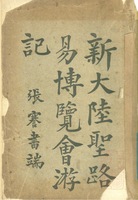 新大陸聖路
易博覽會游
記
張謇書端